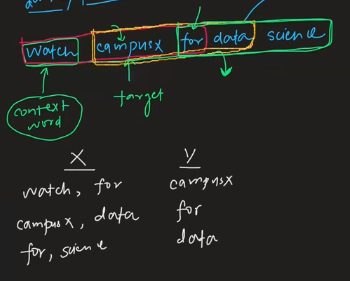 watch campusx for data science
context word
target
X Y
watch, for campusx
campusx, data for
for, science data